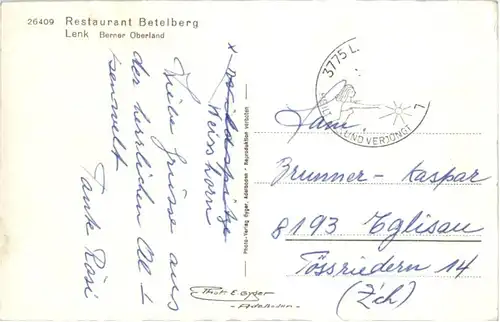 26409 Restaurant Betelberg
Lenk Berner Oberland
x Wildspitze
Weisshorn
Liebe Grüsse aus
der herrlichen
Tante Rösi
Photo-Verlag Gyger, Adelboden - Reproduktion verboten
Phot. E. Gyger
- Adelboden -
3775 L.
UND VERJÜNGT
Fam.
Brunner-Kaspar
8193 Eglisau
Tössriedern 14
(Zch)